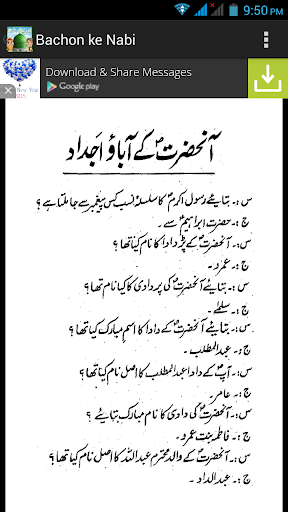 9:50 PM
Bachon ke Nabi
Download & Share Messages
Google play
New Year
2015
آنحضرتؐ کے آباؤ اجداد
س:۔ بتایئے رسول اکرمؐ کا سلسلہ نسب کس پیغمبر سے جا ملتا ہے؟
ج:۔ حضرت ابراہیمؑ سے۔
س:۔ آنحضرتؐ کے پردادا کا نام کیا تھا؟
ج:۔ عمرو۔
س:۔ بتایئے آنحضرتؐ کی پردادی کا کیا نام تھا؟
ج:۔ سلمٰے۔
س:۔ بتایئے آنحضرتؐ کے دادا کا اسم مبارک کیا تھا؟
ج:۔ عبدالمطلب۔
س:۔ آپؐ کے دادا عبدالمطلب کا اصل نام کیا تھا؟
ج:۔ عامر۔
س:۔ آنحضرتؐ کی دادی کا نام مبارک بتایئے؟
ج:۔ فاطمہ بنت عمرو۔
س:۔ آنحضرتؐ کے والد محترم عبداللہ کا اصل نام کیا تھا؟
ج:۔ عبدالداد۔